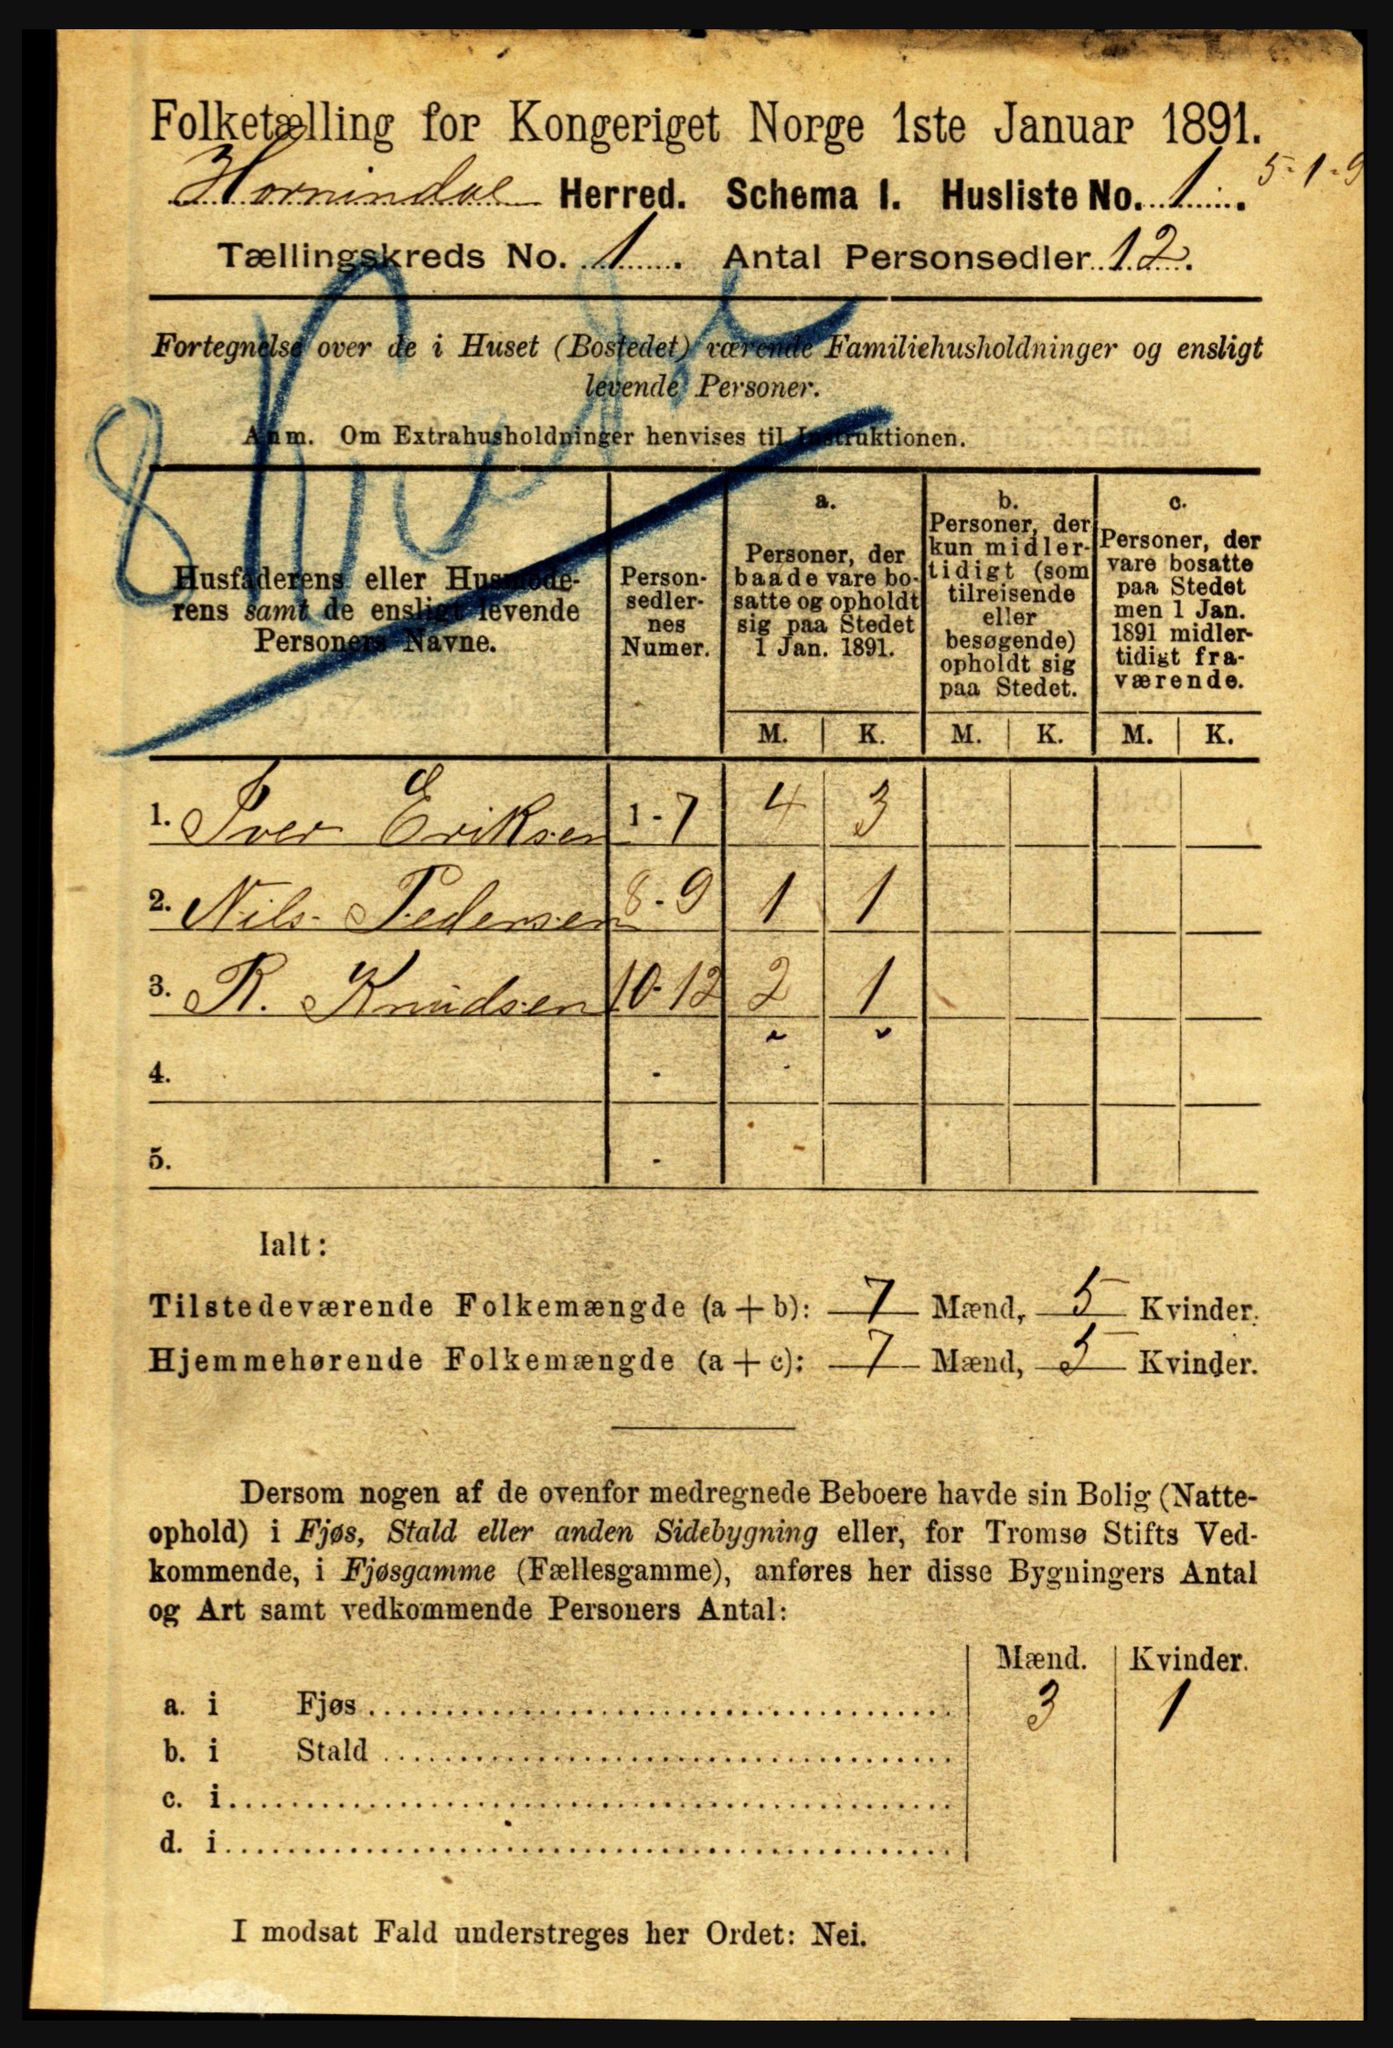 Folketælling for Kongeriget Norge 1ste Januar 1891.
Hornindal Herred. Schema I. Husliste No. 1. 5-1-9
Tællingskreds No. 1. Antal Personsedler 12.
Fortegnelse over de i Huset (Bostedet) værende Familiehusholdninger og ensligt
levende Personer.
Anm. Om Extrahusholdninger henvises til Instruktionen.
8
Husfaderens eller Husmode-
rens samt de ensligt levende
Personers Navne.
Person-
sedler-
nes
Numer.
a.
Personer, der
baade vare bo-
satte og opholdt
sig paa Stedet
1 Jan. 1891.
b.
Personer, der
kun midler-
tidigt (som
tilreisende
eller
besøgende)
opholdt sig
paa Stedet.
c.
Personer, der
vare bosatte
paa Stedet
men 1 Jan.
1891 midler-
tidigt fra-
værende.
M. K. M. K. M. K.
1. Iver Eriksen 1-7 4 3
2. Nils Pedersen 8-9 1 1
3. R. Knudsen 10-12 2 1
4. -
5. -
Ialt:
Tilstedeværende Folkemængde (a + b): 7 Mænd, 5 Kvinder.
Hjemmehørende Folkemængde (a + c): 7 Mænd, 5 Kvinder.
Dersom nogen af de ovenfor medregnede Beboere havde sin Bolig (Natte-
ophold) i Fjøs, Stald eller anden Sidebygning eller, for Tromsø Stifts Ved-
kommende, i Fjøsgamme (Fællesgamme), anføres her disse Bygningers Antal
og Art samt vedkommende Personers Antal:
Mænd. Kvinder.
a. i Fjøs 3 1
b. i Stald
c. i
d. i
I modsat Fald understreges her Ordet: Nei.